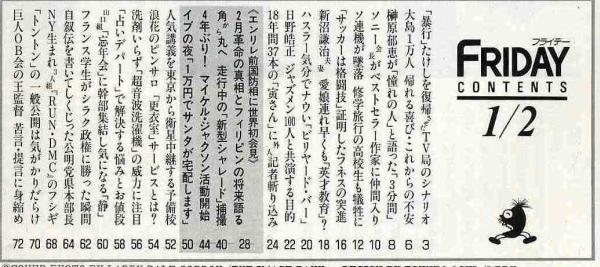 フライデー
FRIDAY
CONTENTS
1/2
「暴行」たけしを復帰させるTV局のシナリオ 3
大島1万人 帰れる喜び・これからの不安 6
榊原郁恵が「憧れの人」と語った「3分間」 8
ソニー会長がベストセラー作家に仲間入り 10
ソ連機が墜落 修学旅行の高校生も犠牲に 12
「サッカーは格闘技」証明したフネスの突進 16
新沼謙治夫妻 愛娘連れ早くも「英才教育」? 18
ハスラー気分でナウい、「ビリヤード・バー」 20
日野皓正、ジャズメン100人と共演する目的 22
18年間37本の「寅さん」に外人記者斬り込み 24
〈エンリレ前国防相に世界初会見〉
2月革命の真相とフィリピンの将来語る 28
角から丸へ 走行中の「新型シャレード」捕捉 40
4年ぶり! マイケル・ジャクソン活動開始 44
イブの夜「1万円でサンタが宅配します」 50
人気講義を東京から衛星中継する予備校 52
浪花のピンサロ「更衣室」サービスとは? 54
洗剤いらず「超音波洗濯機」の威力に注目 56
「占いデパート」で解決する悩みとお値段 58
「忘年会」に幹部集結し気になる「静」 60
フランス学生がシラク政権に勝った瞬間 62
自叙伝を書いてしくじった公明党県本部長 64
NY生まれ3人組「RUN・DMC」のフシギ 68
「トントン」の一般公開は気がかりだらけ 70
巨人OB会の王監督 苦言・提言に身縮め 72